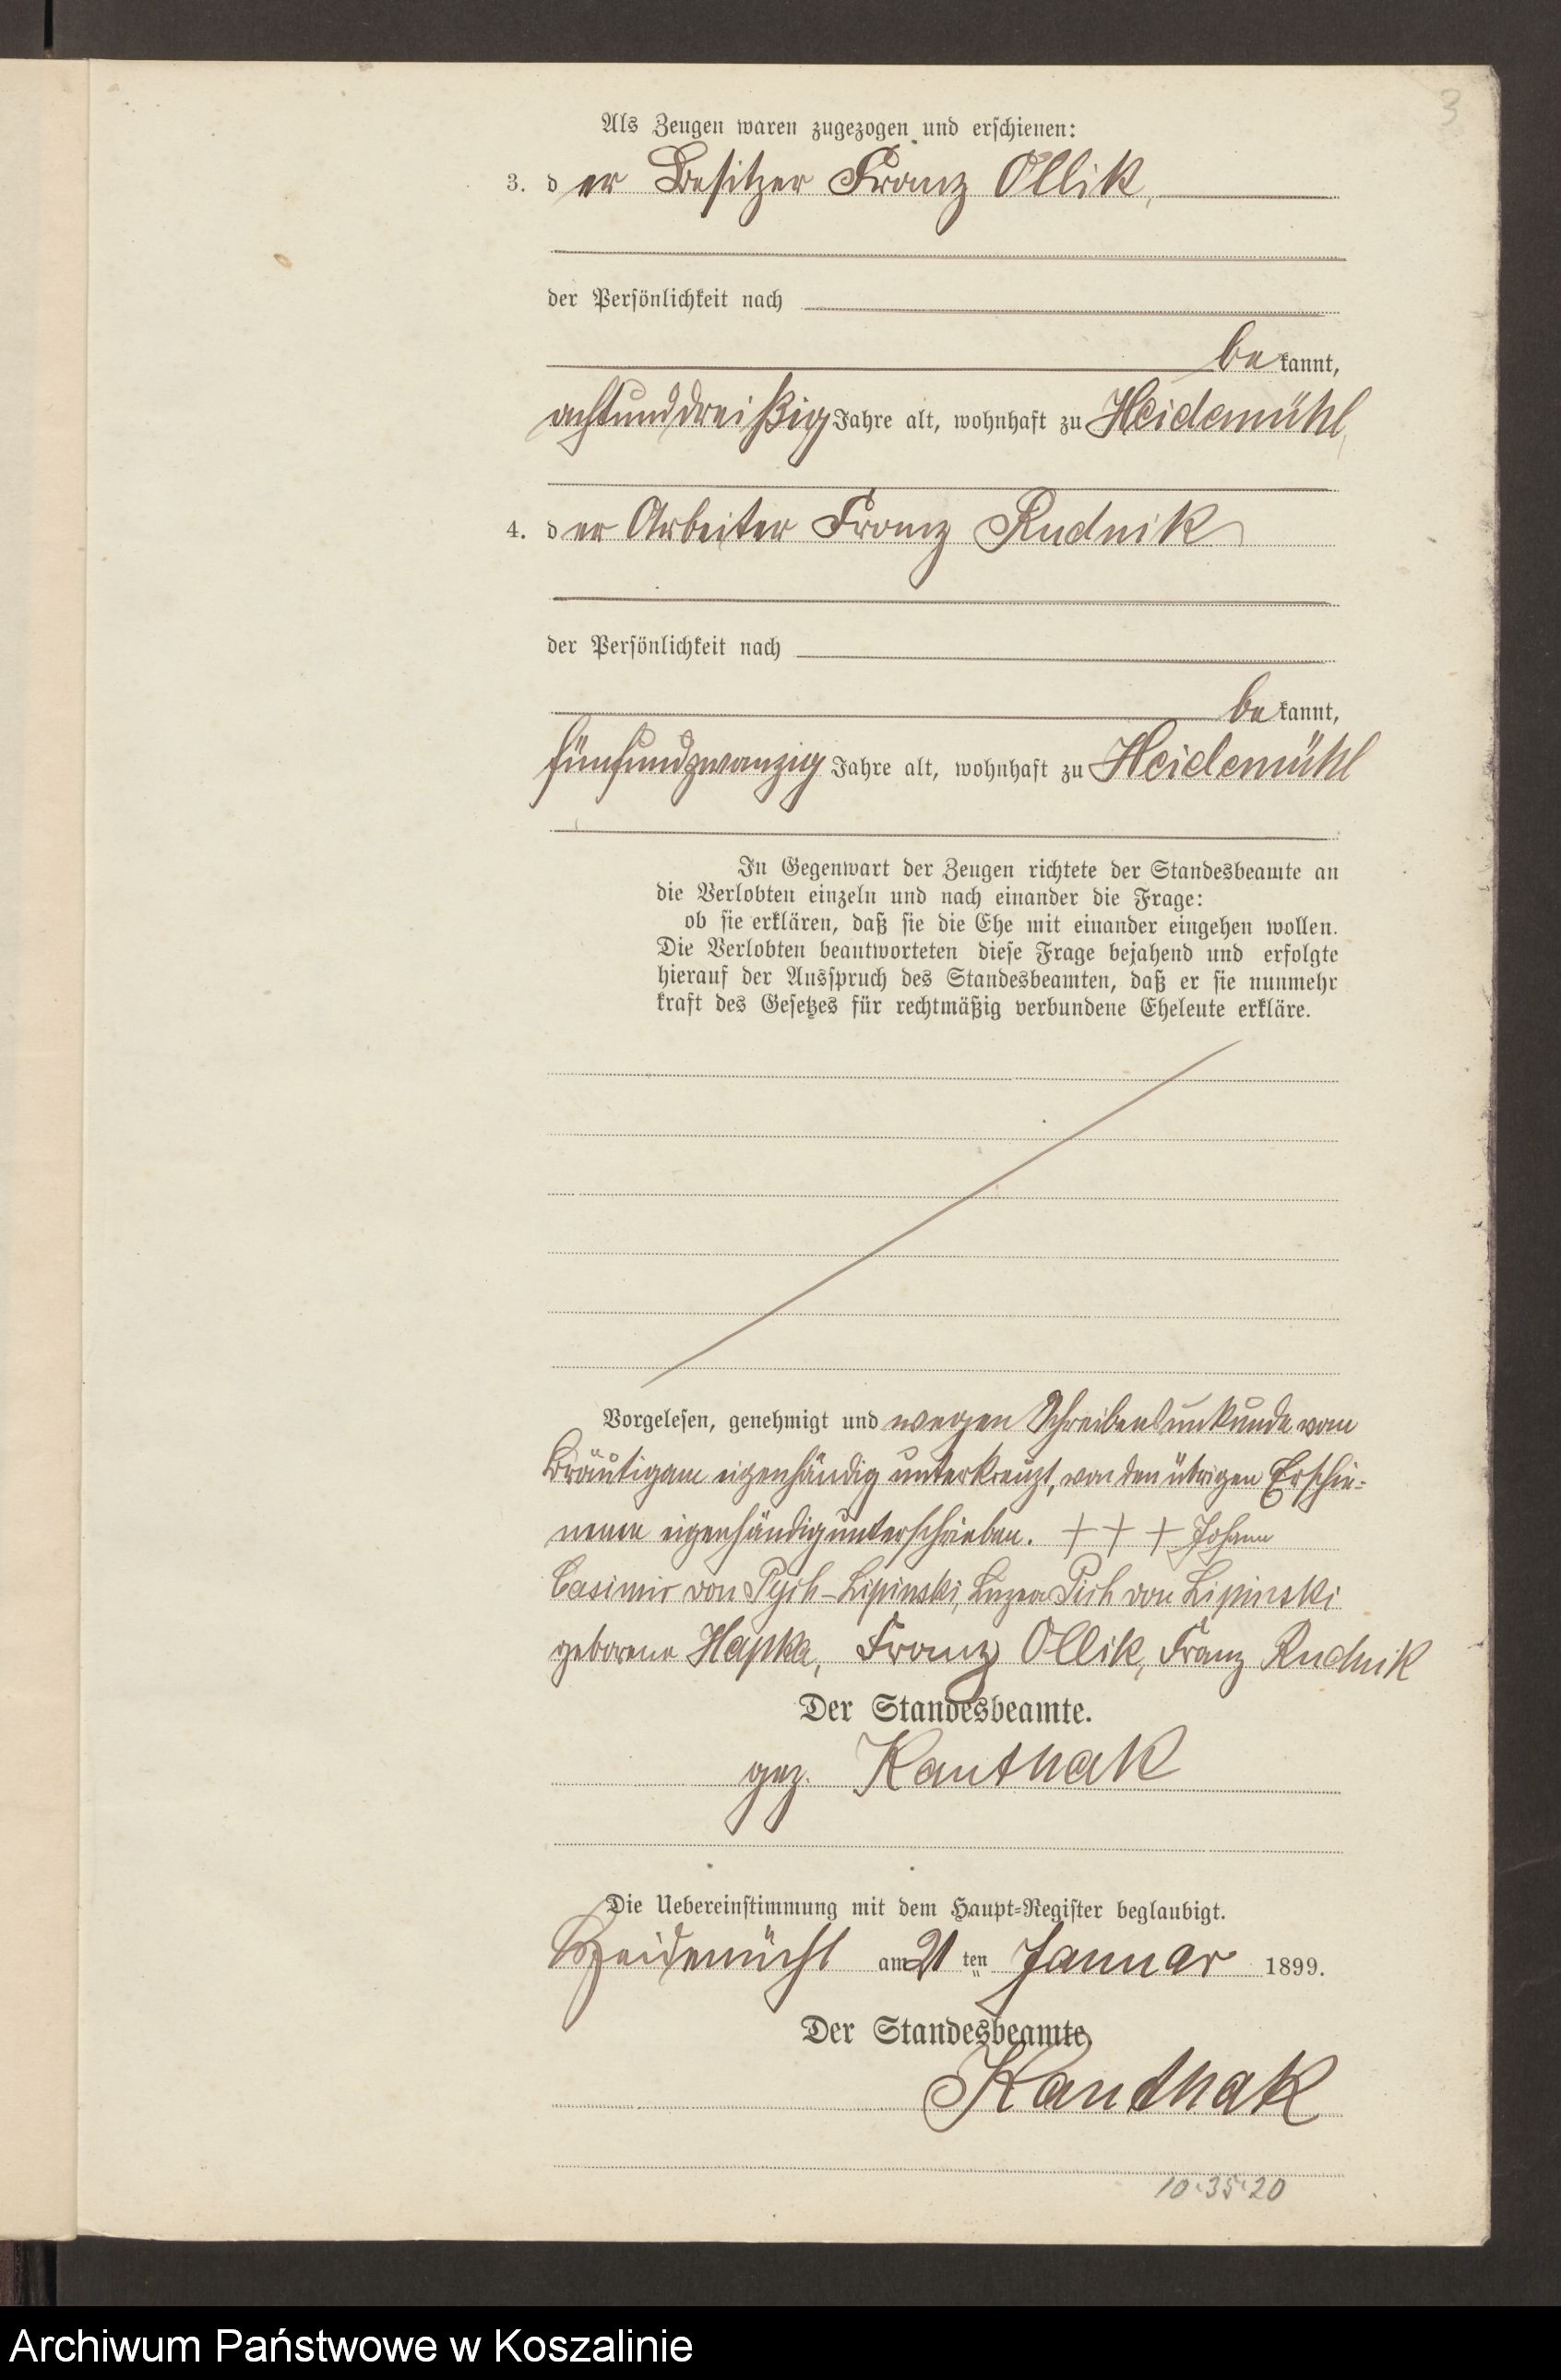 3
Als Zeugen waren zugezogen und erschienen:
3. der Besitzer Franz Ollik,
der Persönlichkeit nach
bekannt,
achtunddreißig Jahre alt, wohnhaft zu Heidemühl,
4. der Arbeiter Franz Rudnik
der Persönlichkeit nach
bekannt,
fünfundzwanzig Jahre alt, wohnhaft zu Heidemühl
In Gegenwart der Zeugen richtete der Standesbeamte an
die Verlobten einzeln und nach einander die Frage:
ob sie erklären, daß sie die Ehe mit einander eingehen wollen.
Die Verlobten beantworteten diese Frage bejahend und erfolgte
hierauf der Ausspruch des Standesbeamten, daß er sie nunmehr
kraft des Gesetzes für rechtmäßig verbundene Eheleute erkläre.
Vorgelesen, genehmigt und wegen Schreibensunkunde vom
Bräutigam eigenhändig unterkreuzt, von den übrigen Erschie-
nenen eigenhändig unterschrieben. + + + Johann
Casimir von Pych-Lipinski, Pich von Lipinski
geborene Hapka, Franz Ollik, Franz Rudnik
Der Standesbeamte.
gez. Kanthak
Die Uebereinstimmung mit dem Haupt-Register beglaubigt.
Heidemühl am 21ten Januar 1899.
Der Standesbeamte
Kanthak
10.35.20
Archiwum Państwowe w Koszalinie